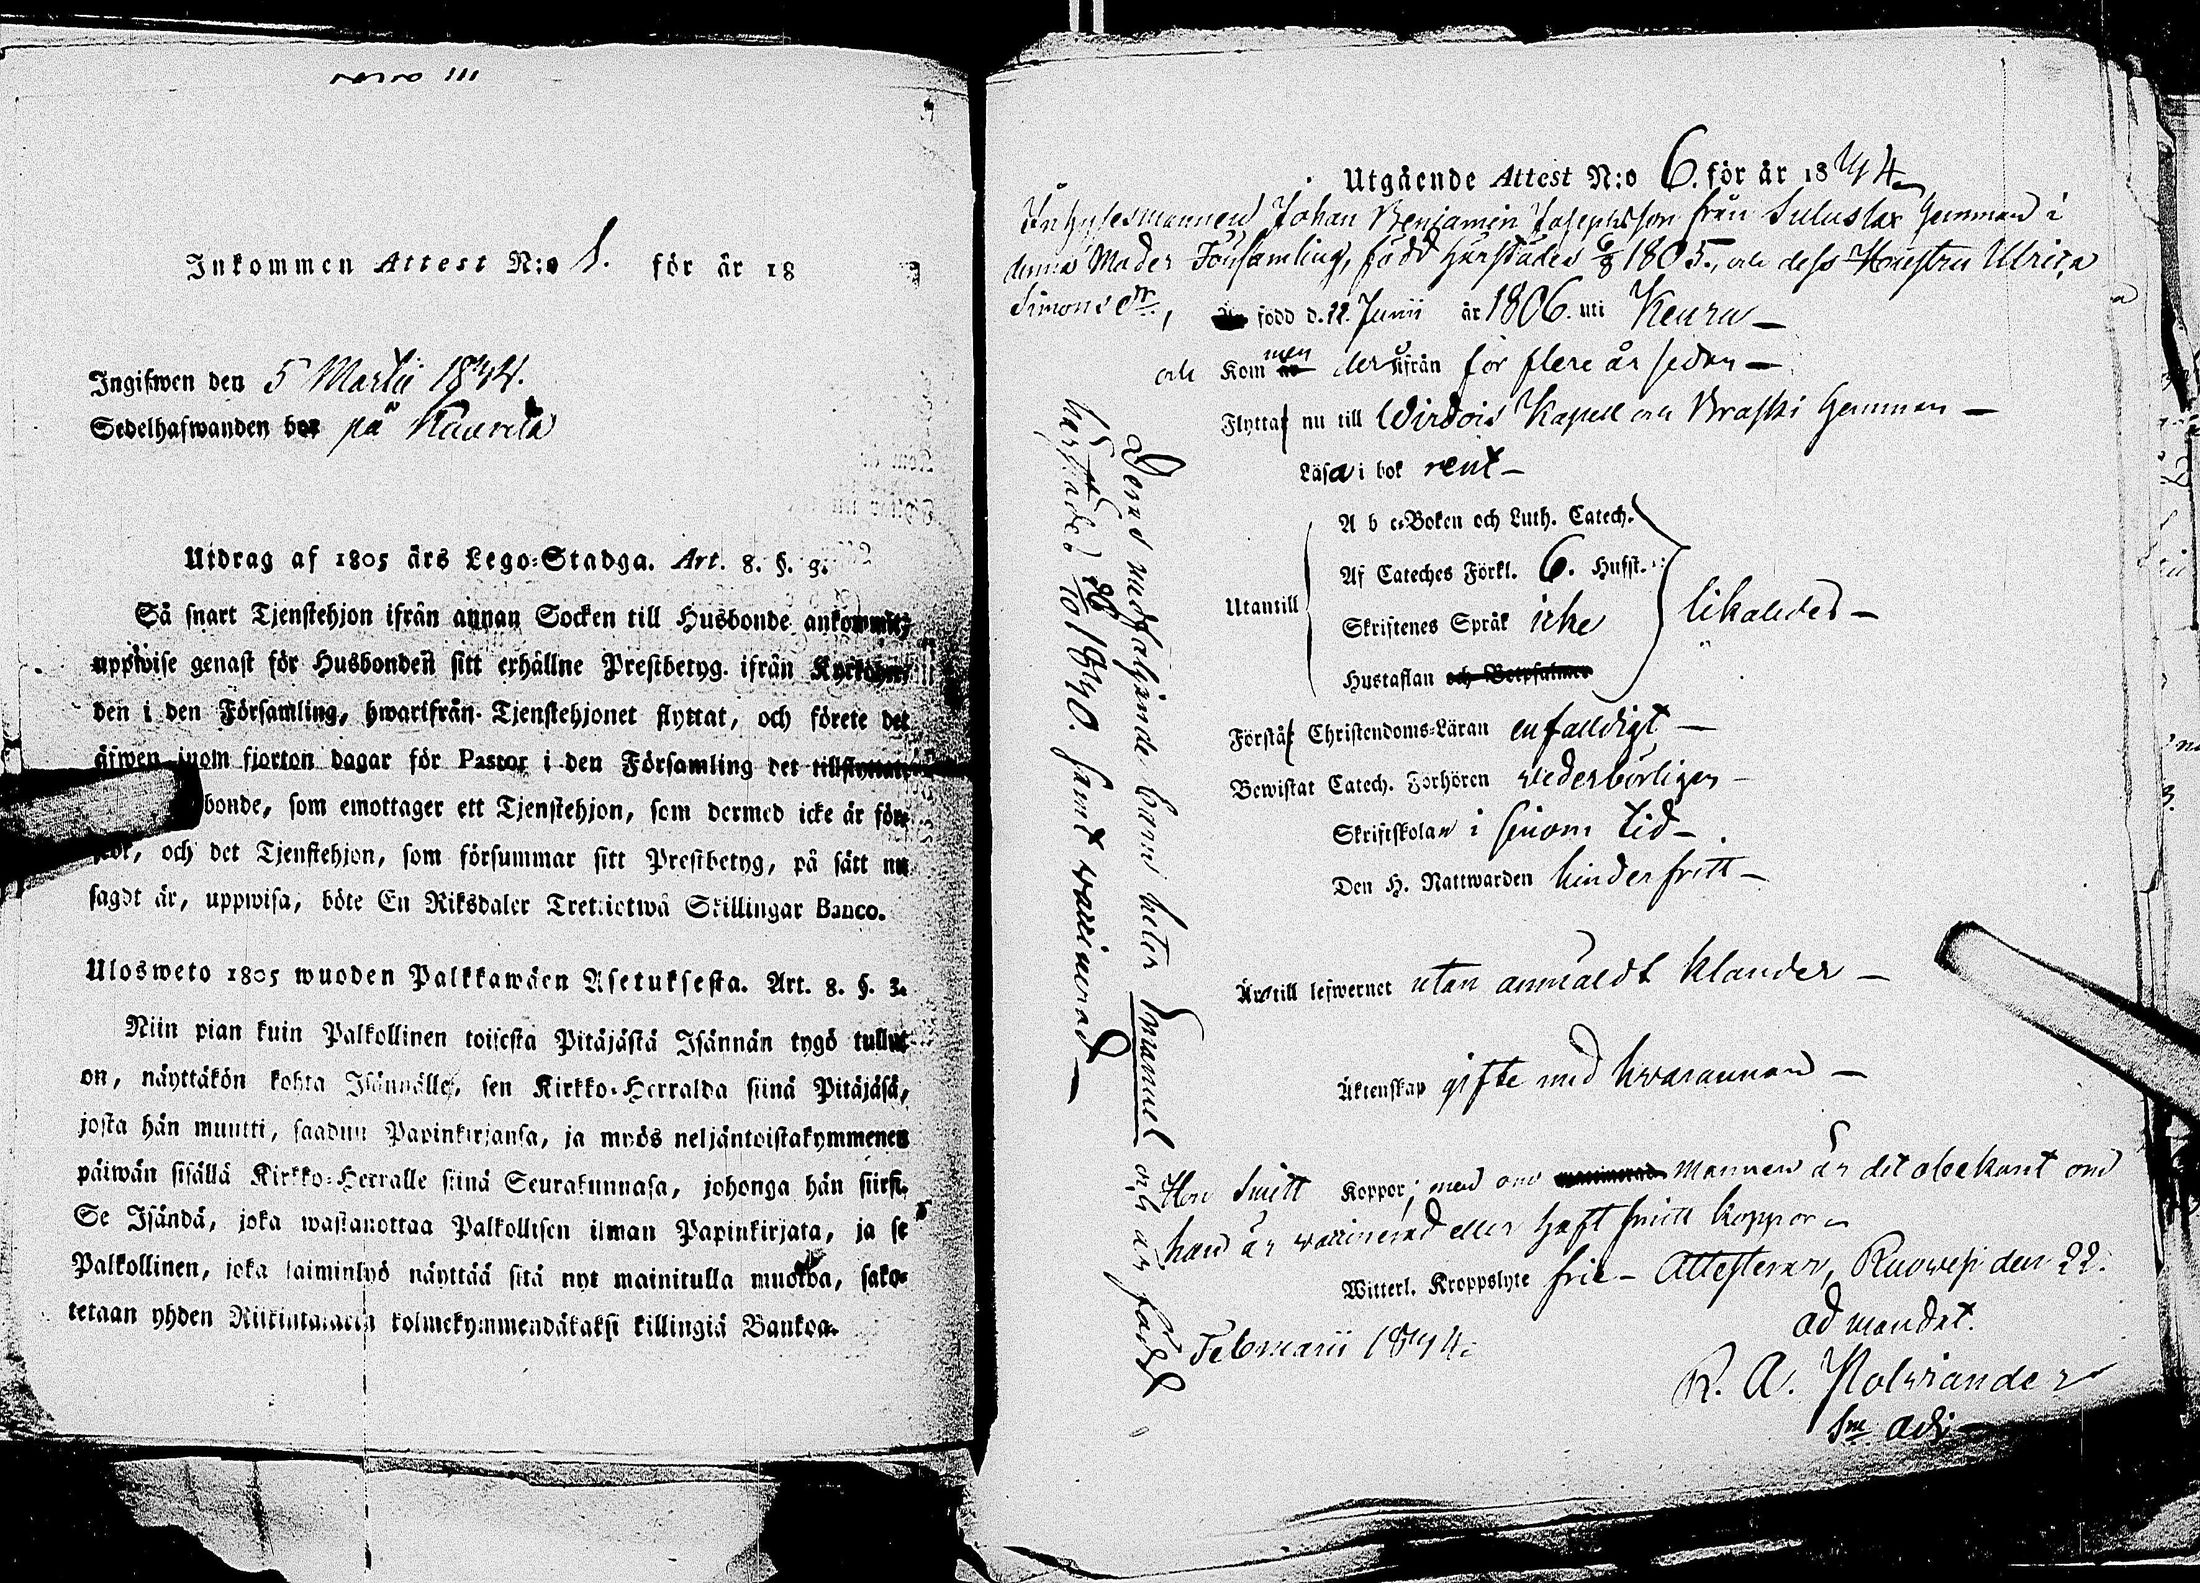 Inkommen Attest N:o 1. för är 18
Ingifwen den 5 Martii 1844.
Sedelhafwanden bor på
Utdrag af 1805 års Lego-Stadga. Art. 8. §. 3.
Så snart Tjenstehjon ifrån annan Socken till Husbonde ankommit,
uppwise genast för Husbonden sitt erhållne Prestbetyg ifrån
den i den Församling, hwarifrån Tjenstehjonet flyttat, och förete det
äfwen inom fjorton dagar för Pastor i den Församling det
bonde, som emottager ett Tjenstehjon, som dermed icke är för-
och det Tjenstehjon, som försummar sitt Prestbetyg, på sätt nu
sagdt är, uppwisa, böte En Riksdaler Trettiotwå Skillingar Banco.
Ulosweto 1805 wuoden Palkkawäen Asetuksesta. Art. 8. §. 3.
Niin pian kuin Palkollinen toisesta Pitäjästä Isännän tygö tullut
on, näyttäkön kohta Isännälle, sen Kirkko-Herralda siinä Pitäjäsä,
josta hän muutti, saadun Papinkirjansa, ja myös neljäntoistakymmenen
päiwän sisällä Kirkko-Herralle siinä Seurakunnasa, johonga hän siirsi.
Se Isändä, joka wastanottaa Palkollisen ilman Papinkirjata, ja se
Palkollinen, joka laiminlyö näyttää sitä nyt mainitulla muotoa, sako-
tetaan yhden Riikintalarin kolmekymmendäkaksi killingiä Bankoa.
Utgående Attest N:o 6. för är 1844
Inhysesmannen Johan Benjamin Josephsson från hemman i
denna Moder Församling, född härstädes 6/8 1805., och dess Hustru Ulrica
Simonsdr., född d. 22. Junii år 1806. uti Keuru
och Kommen derifrån för flere år sedan
Flytta nu till Wirdois Kapell och Braski hemman
Läsa i bok rent
A b c-Boken och Luth. Catech.
Af Cateches Förkl. 6. Hufst.
Utantill
Skriftenes Språk icke
likaledes
Hustaflan och Botpsalmer
Förstå Christendoms-Läran enfaldigt
Bewistat Catech. Förhören vederbörligen
Skriftskolan i sinom tid
Den H. Nattwarden hinderfritt
Äro till lefwernet utan anmäldt klander
Äktenskap gifte med hvarannan
Hon Koppor; men om mannen är det obekant om
han är vaccinerad eller haft koppor
Witterl. Kroppslyte frie Attesterar, Ruovesi den 22.
Februarii 1844.
ad mandat.
R. A. Holsiander
Deras medföljande barn heter Emanuel och är född
härstädes 26/10 1840. samt vaccinerad